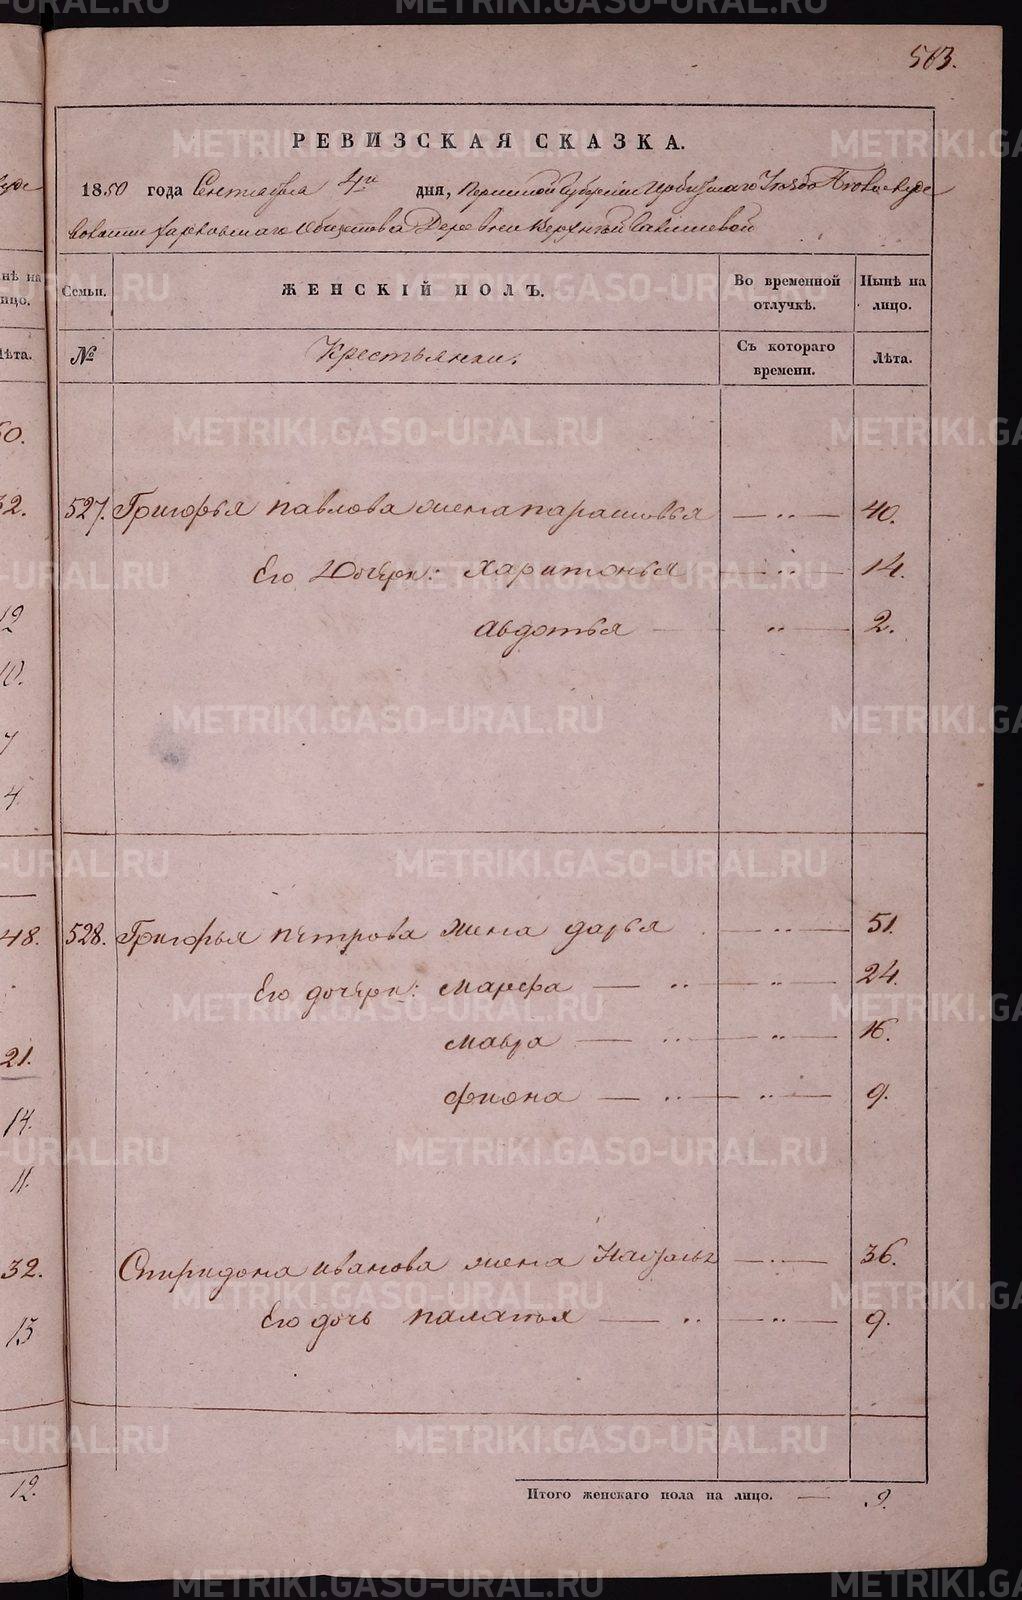 563.
РЕВИЗСКАЯ СКАЗКА.
1850 года Сентября 4го дня, Пермской Губернии Ирбитскаго Уѣзда
Общества Деревни
Семьи.
ЖЕНСКІЙ ПОЛЪ.
Во временной отлучкѣ.
Нынѣ на лицо.
№
Крестьянки.
Съ котораго времени.
Лѣта.
527. Григорья Павлова жена парасковья — „ — 40.
Его Дочери: Харитонья — „ — 14.
Авдотья — „ — 2.
528. Григорья петрова жена дарья — „ — 51.
Его дочери: марѳа — „ — „ — 24.
мавра — „ — „ — 16.
фиона — „ — „ — 9.
Спиридона иванова жена Наталья — „ — 36.
Его дочь палатья — „ — „ — 9.
Итого женскаго пола на лицо. — 9.
нѣ на
ицо.
ѣта.
60.
32.
19
10.
7
4.
48.
21.
14.
11.
32.
13
12.
METRIKI.GASO-URAL.RU